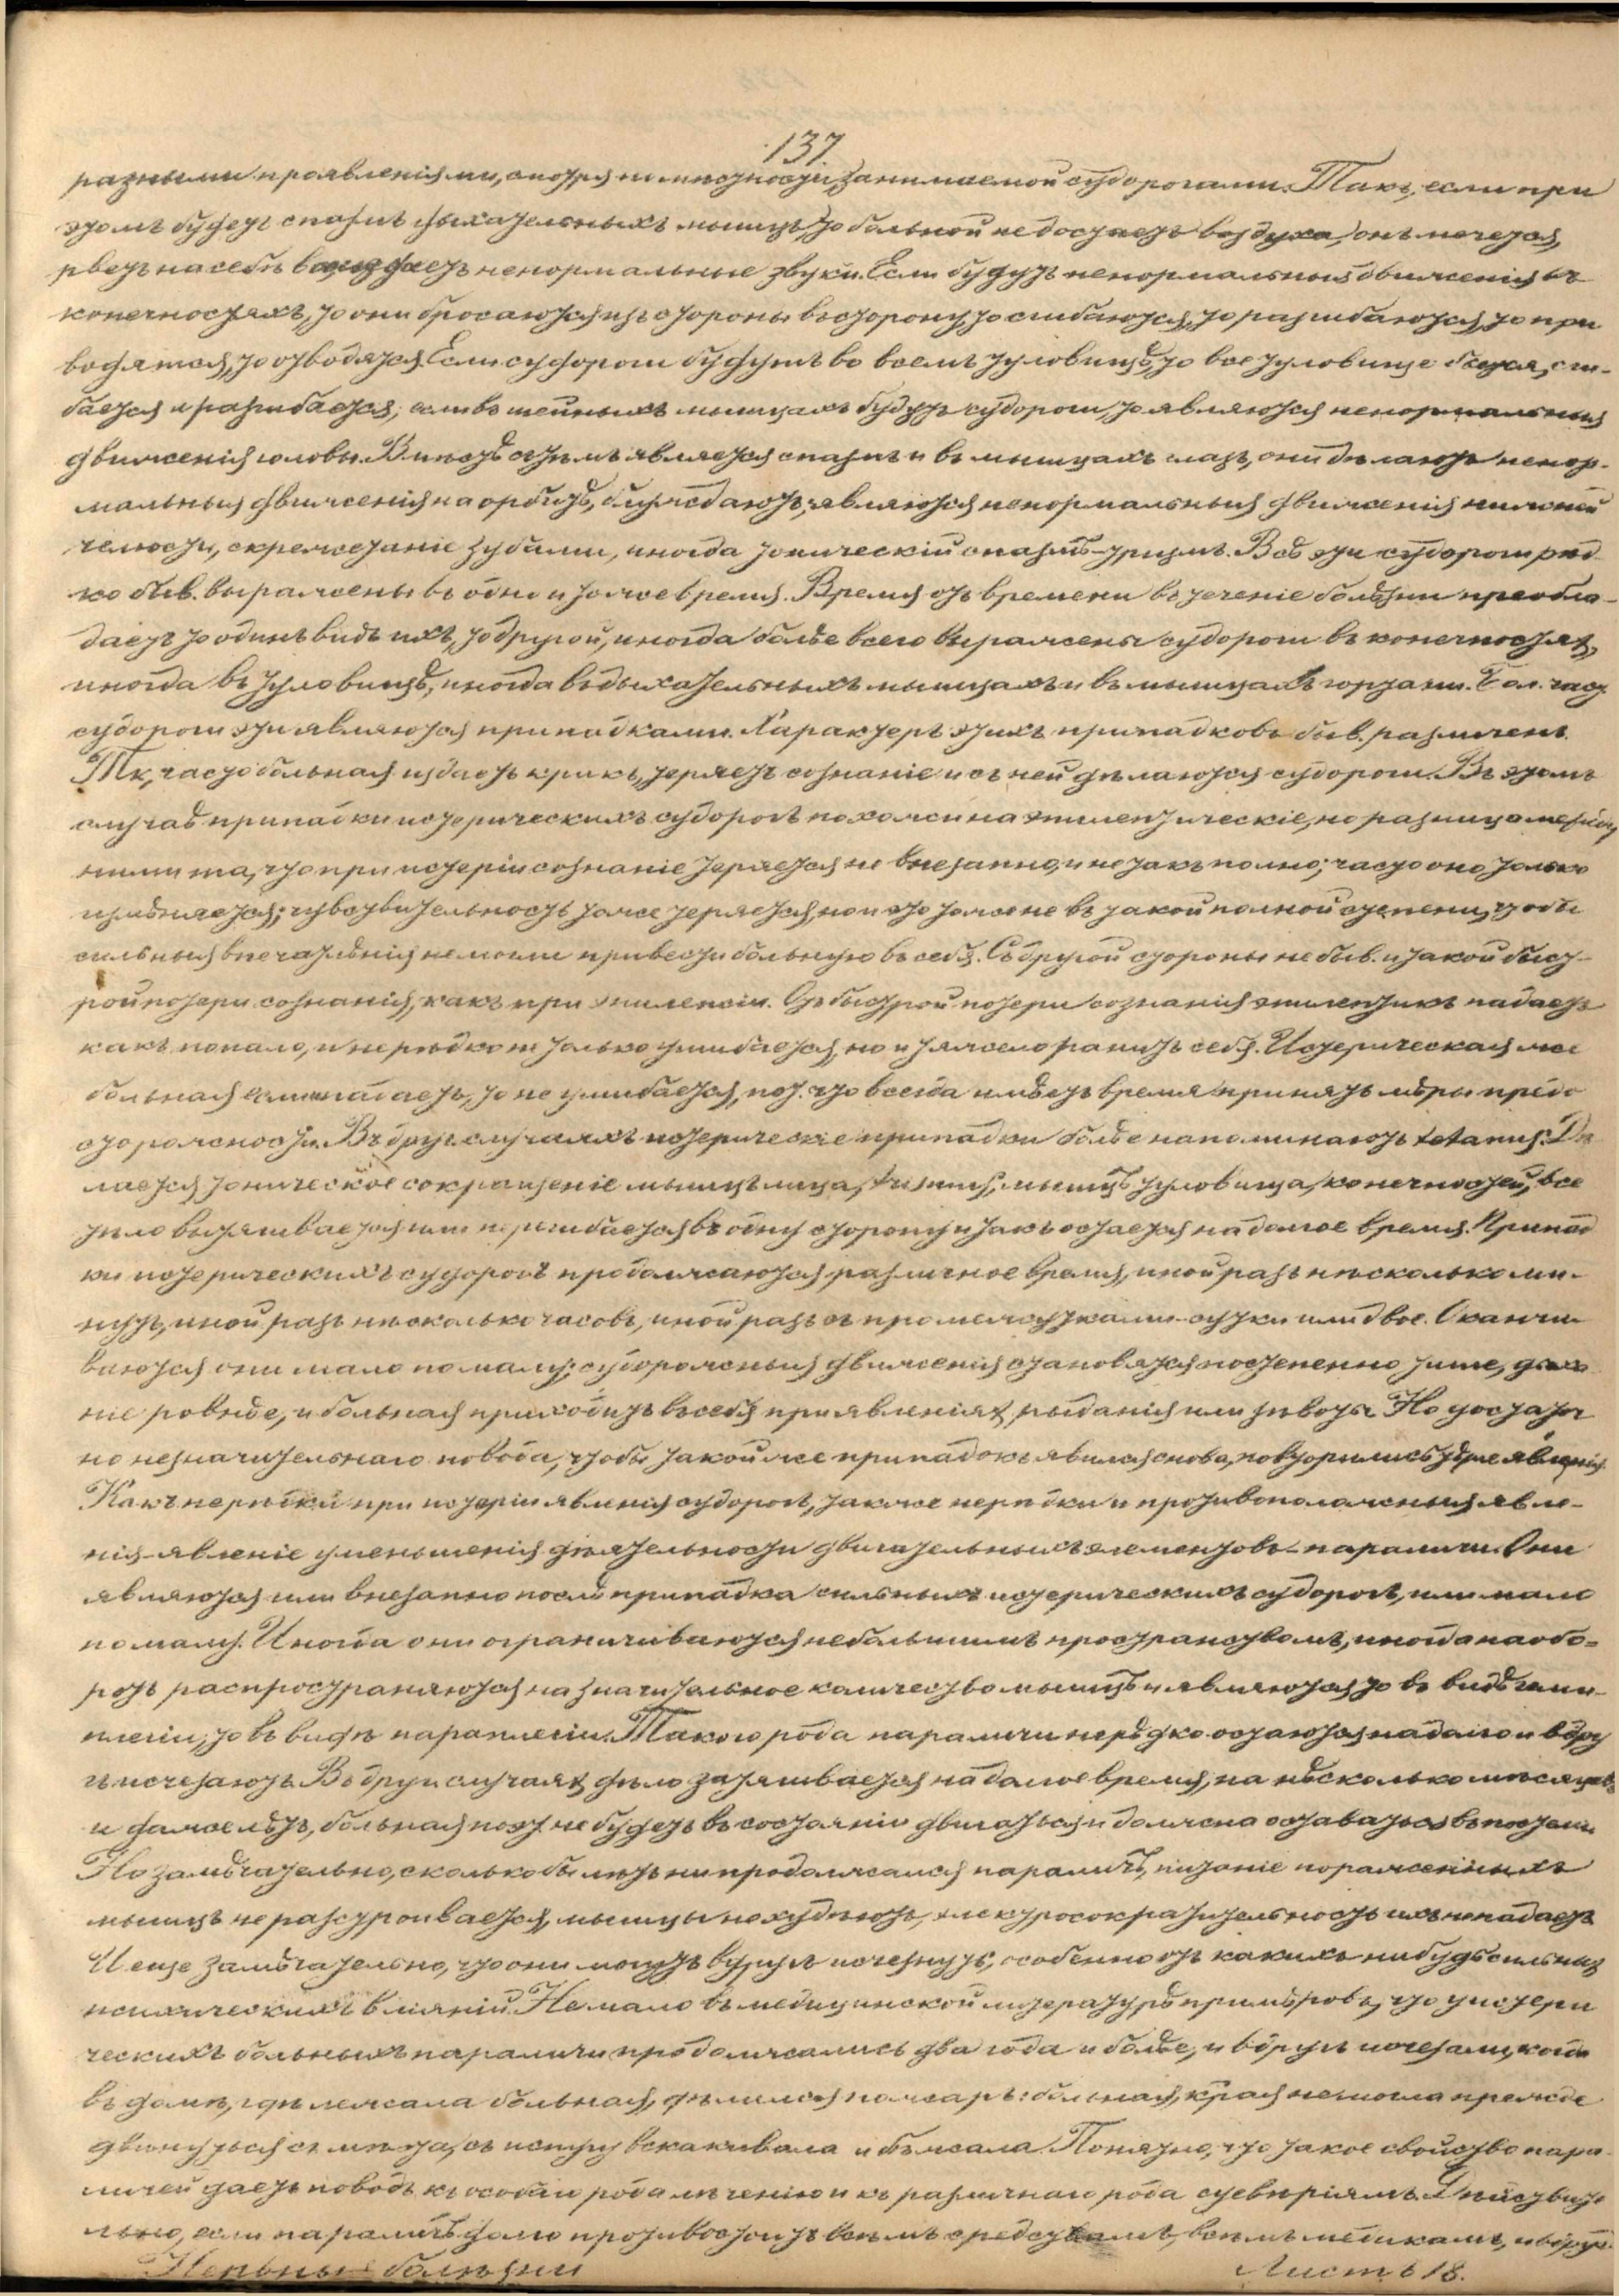 137.
разными проявленіями, смотря по мѣстности, занимаемой судорогами. Такъ, если при
этомъ будетъ спазмъ дыхательныхъ мышцъ, то больной недостаетъ воздуха, онъ мечется,
рветъ на себѣ издаетъ ненормальные звуки. Если будутъ ненормальныя движенія въ
конечностяхъ, то они бросаются изъ стороны въ сторону, то сгибаются, то разгибаются, то при
водятся, то отводятся. Если судороги будутъ во всемъ туловищѣ, то все туловище бьется, сги-
бается и разгибается; если въ шейныхъ мышцахъ будутъ судороги, то являются ненормальныя
движенія головы. Вмѣстѣ съ тѣмъ является спазмъ и въ мышцахъ глазъ, они дѣлаютъ ненор-
мальныя движенія на орбитѣ, блуждаютъ, являются ненормальныя движенія нижней
челюсти, скрежетаніе зубами, иногда тоническій спазмъ-тризмъ. Всѣ эти судороги рѣд
ко быв. выражены въ одно и тоже время. Время отъ времени въ теченіе болѣзни преобла-
даетъ то одинъ видъ ихъ, то другой, иногда болѣе всего выражены судороги въ конечностях,
иногда въ туловищѣ, иногда въ дыхательныхъ мышцахъ и въ мышцахъ гортани. Бол. част
судороги эти являются припадками. Характеръ этихъ припадковъ быв. различенъ.
Тк, часто больная издаетъ крикъ, теряетъ сознаніе и съ ней дѣлаются судороги. Въ этомъ
случаѣ припадки истерическихъ судорогъ похожи на эпилептическіе, но разница между
ними та, что при истеріи сознаніе теряется не внезапно, и не такъ полно; часто оно только
измѣняется; чувствительность тоже теряется, но и это тоже не въ такой полной степени, чтобы
сильныя впечатлѣнія не могли привести больную въ себя. Съ другой стороны не быв. и такой быст-
рой потери сознанія, какъ при эпилепсіи. Отъ быстрой потери сознанія эпилептикъ падаетъ
какъ попало, и нерѣдко не только ушибается, но и тяжело ранитъ себя. Истерическая же
больная если падаетъ, то не ушибается, пот. что всегда имѣетъ время принять мѣры предо
сторожности. Въ друг. случаяхъ истерическіе припадки болѣе напоминаютъ tetanus. Дѣ
лается тоническое сокращеніе мышцъ лица, trismus, мышцъ туловища, конечностей, все
тѣло вытягивается или перегибается въ одну сторону и такъ остается на долгое время. Припад
ки истерическихъ судорогъ продолжаются различное время, иной разъ нѣсколько ми-
нутъ, иной разъ нѣсколько часовъ, иной разъ съ промежутками-сутки или двое. Оканчи
ваются они мало помалу; судорожныя движенія становятся постепенно тише, дыха
ніе ровнѣе, и больная приходитъ въ себя при явленіях рыданія или зѣвоты. Но достаточ
но незначительнаго повода, чтобы такой же припадокъ явился снова, повторились тѣже явленія.
Какъ нерѣдки при истеріи явленія судорогъ, также нерѣдки и противоположныя явле-
нія-явленіе уменьшенія дѣятельности двигательныхъ элементовъ-параличи. Они
являются или внезапно послѣ припадка сильныхъ истерическихъ судорогъ, или мало
помалу. Иногда они ограничиваются небольшимъ пространствомъ, иногда наобо-
ротъ распространяются на значительное количество мышцъ и являются то въ видѣ геми-
плегіи, то въ видѣ параплегіи. Такого рода параличи нерѣдко остаются надолго и вдру
гъ исчезаютъ. Въ други случаях дѣло затягивается на долгое время, на нѣсколько мѣсяцевъ
и даже лѣтъ, больная пот. не будетъ въ состояніи двигаться и должна оставаться въ постели.
Но замѣчательно, сколько бы лѣтъ ни продолжался параличъ, питаніе пораженныхъ
мышцъ не разстроивается, мышцы не худѣютъ, электросократительность ихъ не падаетъ
И еще замѣчательно, что они могутъ вдругъ исчезнуть, особенно отъ какихъ нибудь сильных
психическихъ вліяній. Не мало въ медицинской литературѣ примѣровъ, что у истери
ческихъ больныхъ параличи продолжались два года и болѣе, и вдругъ исчезали, когда
въ домѣ, гдѣ лежала больная, дѣлился пожаръ: больная, края не могла прежде
двинуться съ мѣста, съ испугу вскакивала и бѣжала. Понятно, что такое свойство пара-
личей даетъ поводъ къ особаго рода лѣченію и къ различнаго рода суевѣріямъ. Дѣйствите
льно, если параличъ долго противостоитъ всѣмъ средствамъ, всѣмъ медикамъ, и вдругъ
Нервныя болѣзни Листъ 18.